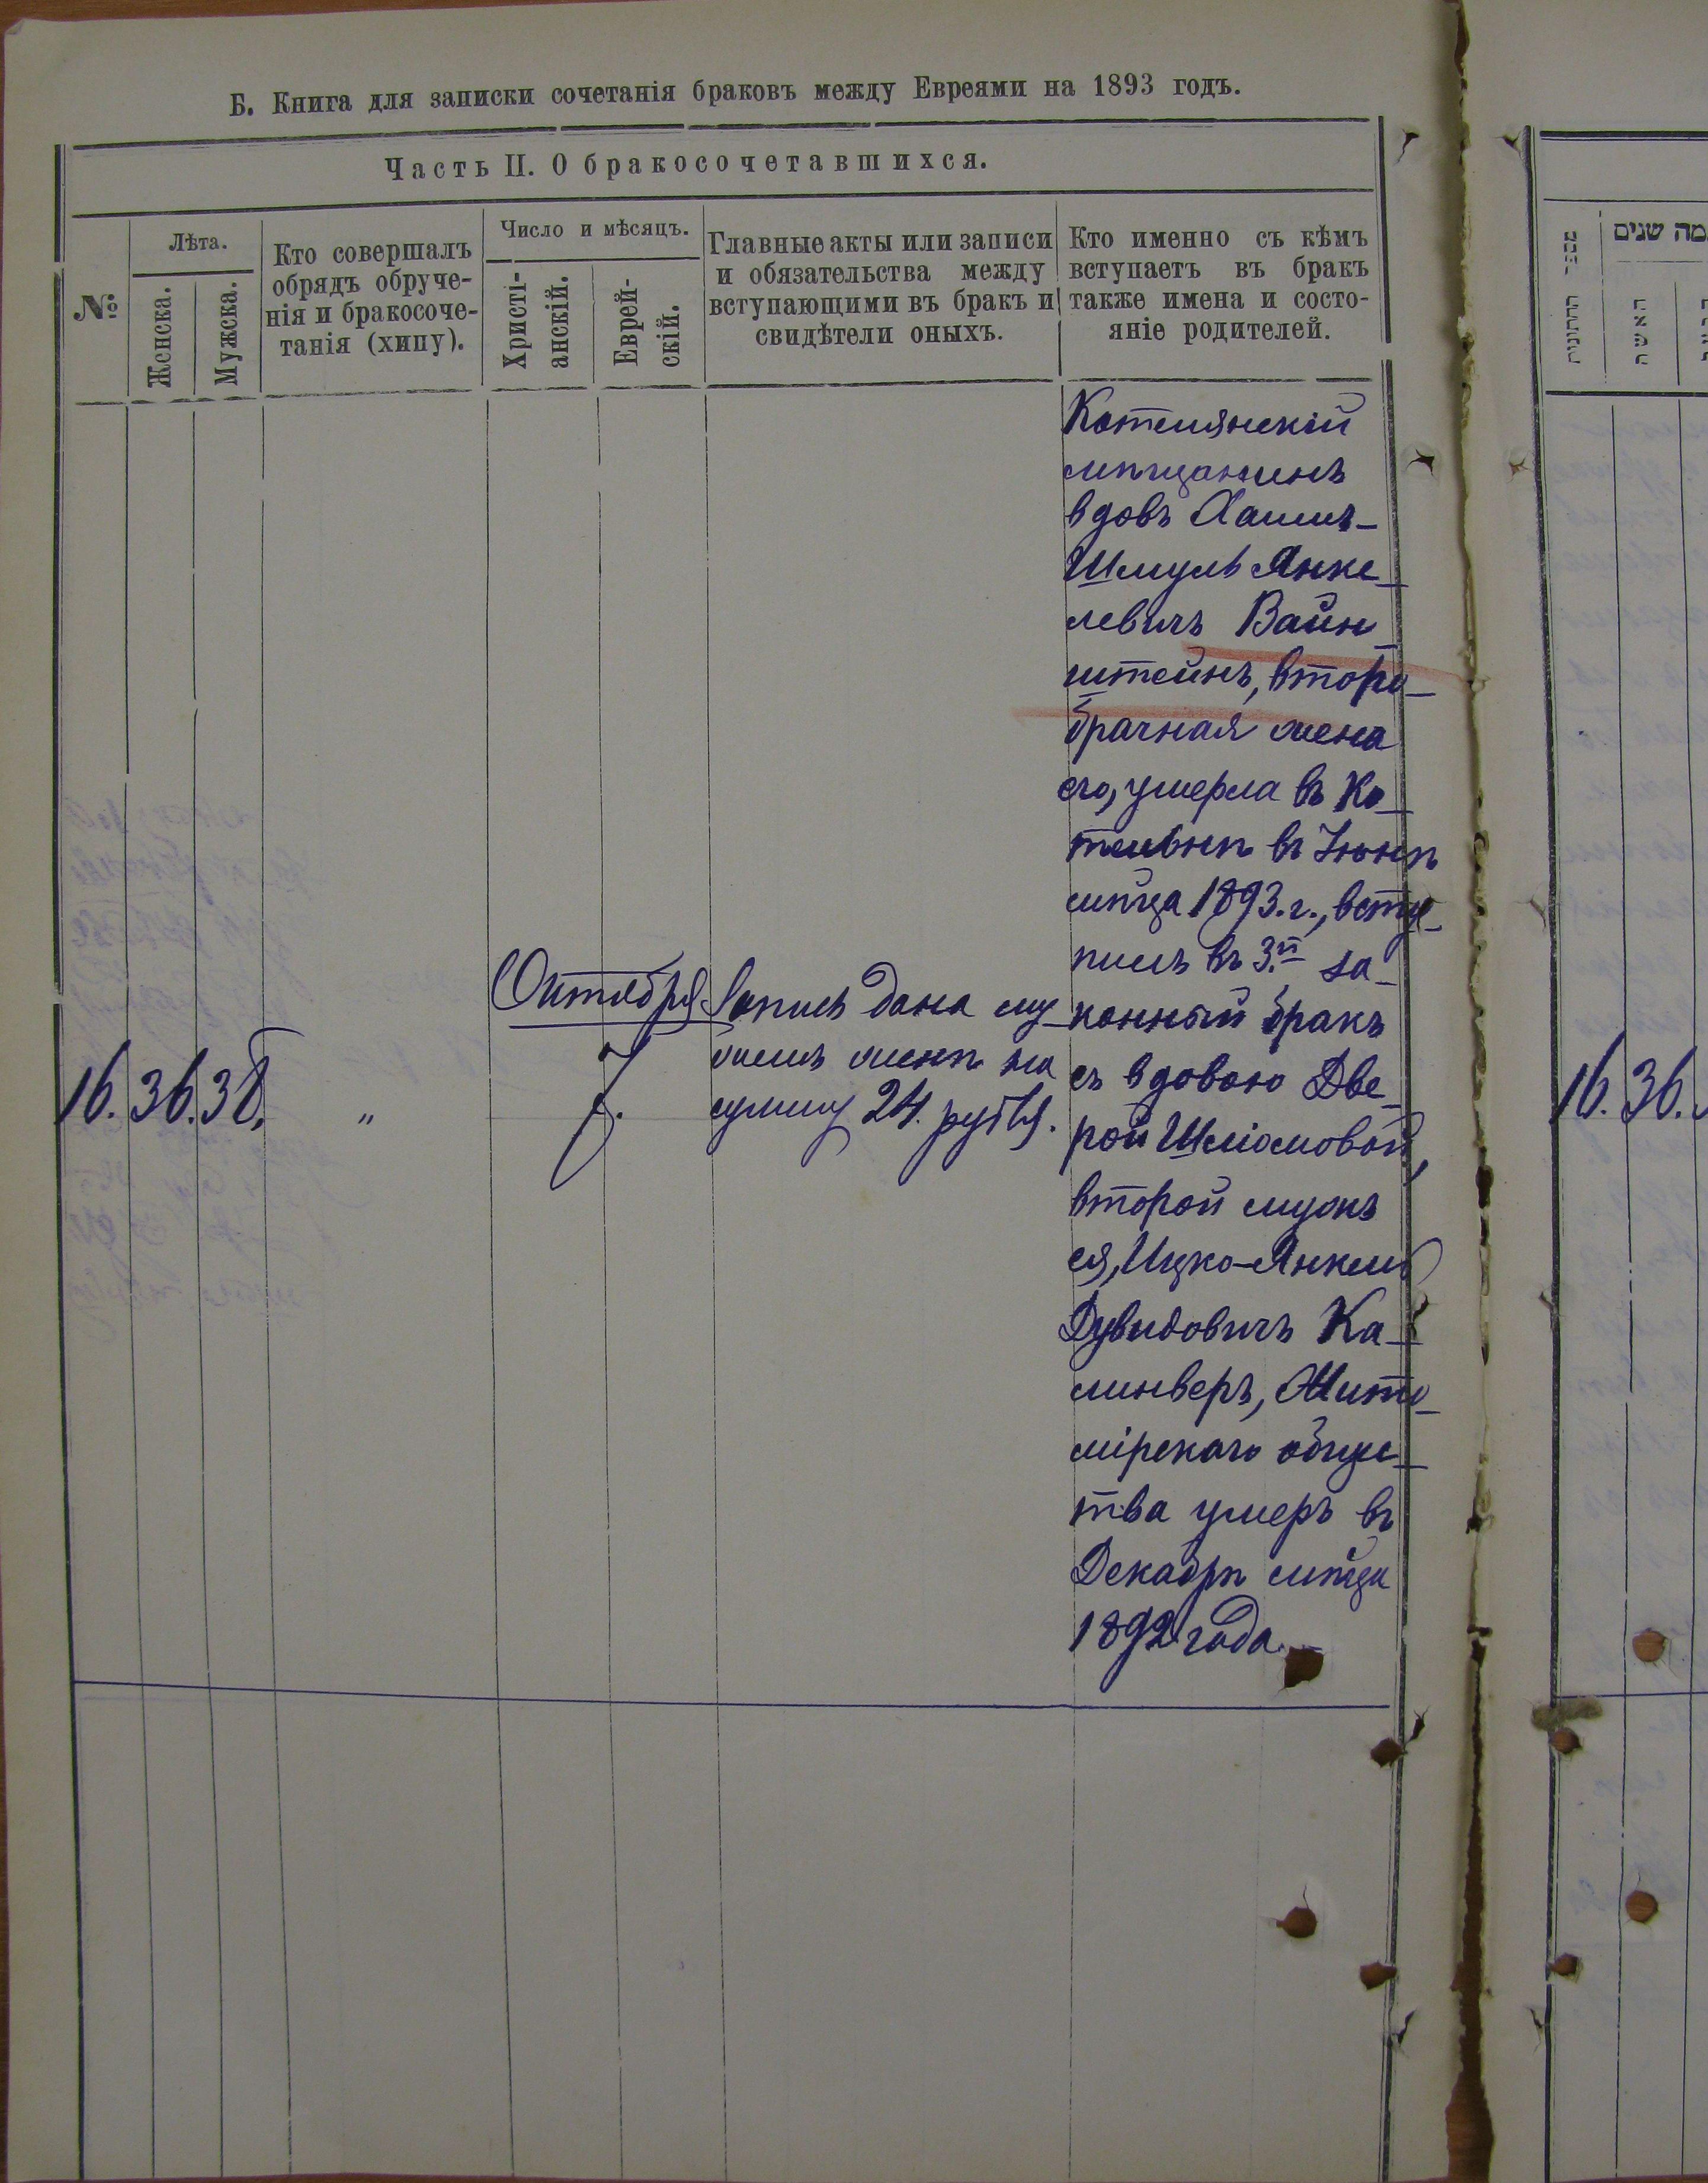 Б. Книга для записки сочетанія браковъ между Евреями на 1893 годъ.
Часть II. О бракосочетавшихся.
№
Лѣта.
Женска.
Мужска.
Кто совершалъ
обрядъ обруче-
нія и бракосоче-
танія (хипу).
Число и мѣсяцъ.
Христі-
анскій.
Еврей-
скій.
Главные акты или записи
и обязательства между
вступающими въ бракъ и
свидѣтели оныхъ.
Кто именно съ кѣмъ
вступаетъ въ бракъ
также имена и состо-
яніе родителей.
16. 36. 38. "
Октября
7.
Запись дана му
жемъ женѣ на
сумму 24. рубля.
Котелянскій
мѣщанинъ
вдовъ Хаимъ-
Шмуль Янке
левичъ Вайн
штейнъ, второ
брачная жена
его, умерла въ Ко
тельнѣ въ Іюнѣ
мѣца 1893. г., всту
пилъ въ 3.й за
конный бракъ
съ вдовою Две
рой Шліомовой,
второй мужъ
ея, Ицко-Янкель
Дувидовичъ Ка
минверъ, Жито
мірскаго общес
тва умеръ въ
Декабрѣ мѣца
1892 года.
שנים
האשה
16. 36.